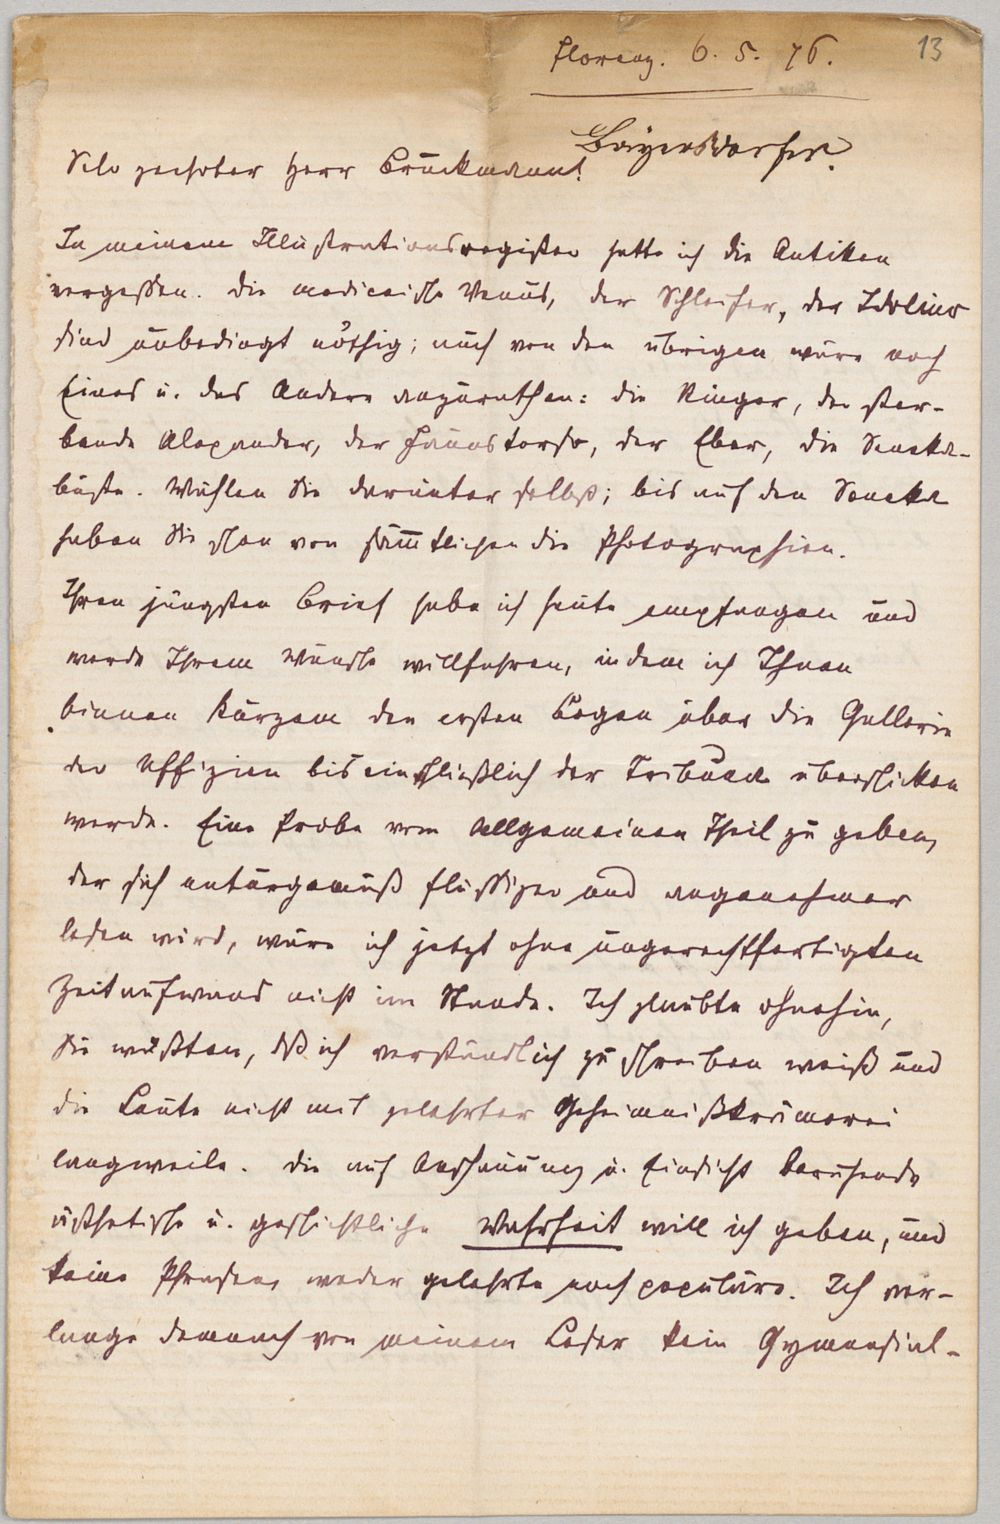 Florenz. 6. 5. 76.
13
Bayersdorfer.
Sehr geehrter Herr Bruckmann!
In meinem Illustrationsregister hatte ich die Antiken
vergessen. Die mediceische Venus, der Schleifer, der Idolino
sind unbedingt nöthig; auch von den übrigen wäre noch
Eines u. das Andere anzurathen: die Ringer, der ster-
bende Alexander, der Faunstorso, der Eber, die Seneka-
büste. Wählen Sie darunter selbst; bis auf den Seneka
haben Sie schon von säm̅tlichen die Photographien.
Ihren jüngsten Brief habe ich heute empfangen und
werde Ihrem Wunsche willfahren, indem ich Ihnen
binnen Kurzem den ersten Bogen über die Gallerie
der Uffizien bis einschließlich der Tribuna überschicken
werde. Eine Probe vom Allgemeinen Theil zu geben,
der sich naturgemäß flüssiger und angenehmer
lesen wird, wäre ich jetzt ohne ungerechtfertigten
Zeitaufwand nicht im Stande. Ich glaubte ohnehin,
Sie wüßten, dß ich verständlich zu schreiben weiß und
die Leute nicht mit gelehrter Geheimnißkrämerei
langweile. Die auf Anschauung u. Einsicht beruhende
ästhetische u. geschichtliche Wahrheit will ich geben, und
keine Phrasen, weder gelehrte noch populäre. Ich ver-
lange demnach von meinem Leser kein Gymnasial-